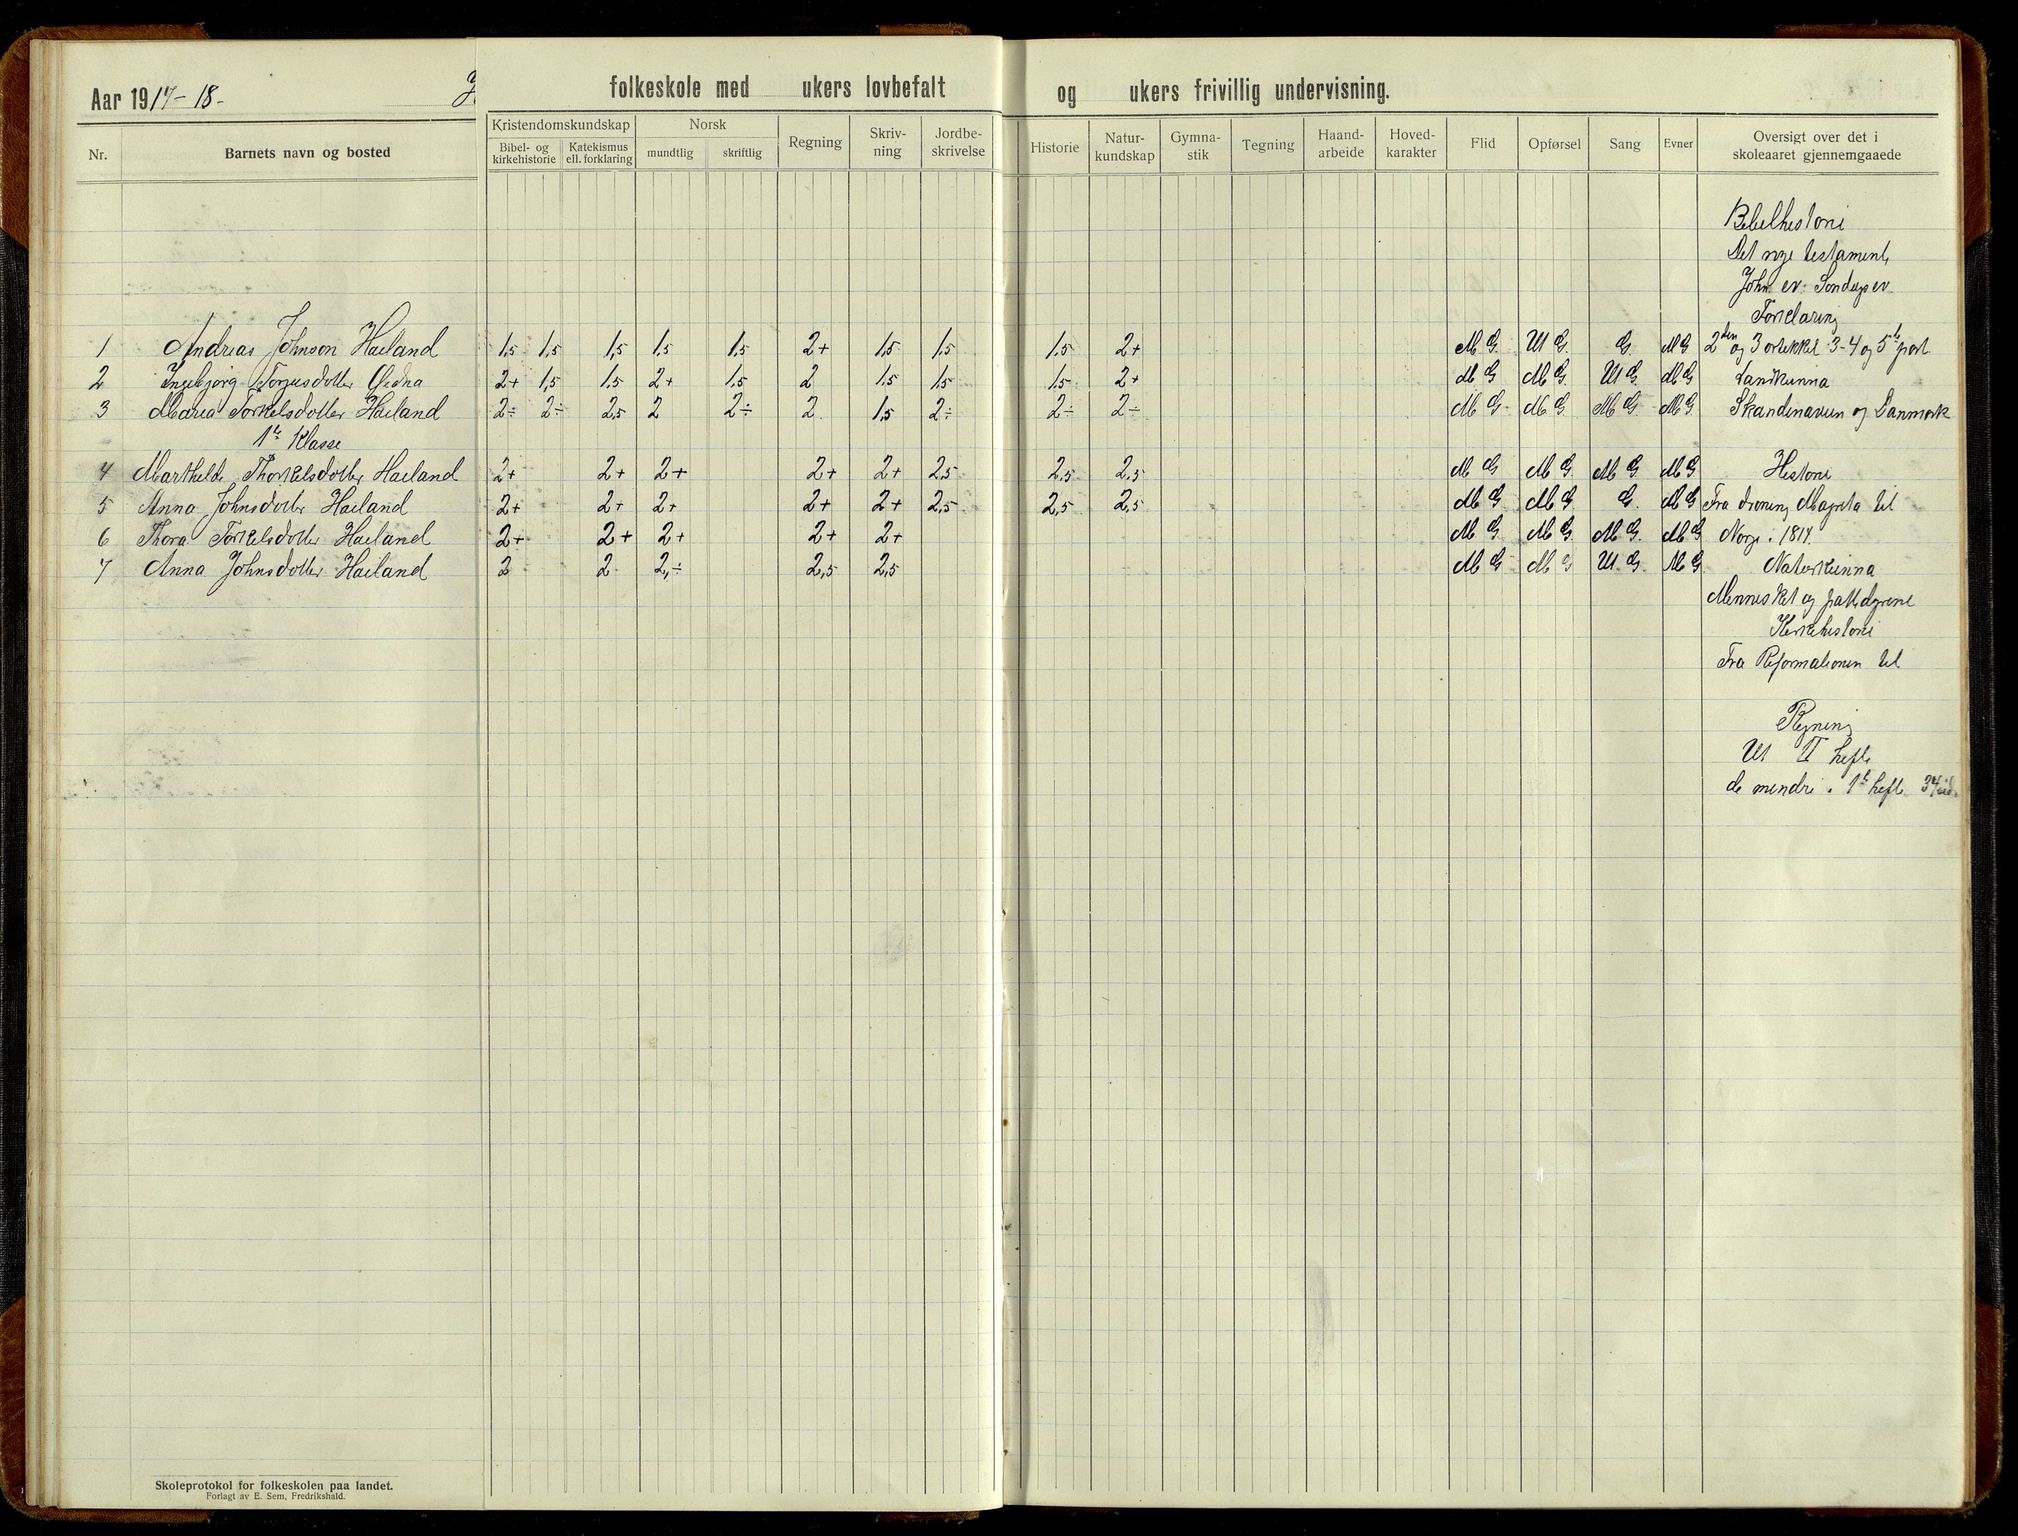 Aar 1917-18-
folkeskole med ukers lovbefalt og ukers frivillig undervisning.
Nr. Barnets navn og bosted
Kristendomskundskap
Bibel- og kirkehistorie
Katekismus ell. forklaring
Norsk
mundtlig skriftlig
Regning
Skriv-ning
Jordbe-skrivelse
Historie
Natur-kundskap
Gymna-stik
Tegning
Haand-arbeide
Hoved-karakter
Flid
Opførsel
Sang
Evner
Oversigt over det i skoleaaret gjennemgaaede
Bibelhistorie
Det nye testament
John ev. Søndags ev.
Forklaring
1 Andreas Johnson Haeland 1,5 1,5 1,5 1,5 1,5 2+ 1,5 1,5 1,5 2+ M G U G G M G 2den og 3 artikkel 3-4 og 5te part
2 Ingebjørg Torjusdotter Øedna 2+ 1,5 1,5 2+ 1,5 2 1,5 1,5 1,5 2+ M G M G U G M G Landkunna
3 Maria Torkelsdotter Haeland 2÷ 2÷ 2,5 2 2÷ 2 1,5 2÷ 2÷ 2÷ M G M G M G M G Skandinavien og Danmark
1te Klasse
4 Marthilde Thorkelsdotter Haeland 2+ 2+ 2+ 2+ 2+ 2,5 2,5 2,5 M G M G M G M G Historie
5 Anna Johnsdotter Haeland 2+ 2+ 2+ 2+ 2+ 2,5 2,5 2,5 M G M G G M G Fra droning Magreta til
6 Thora Torkelsdotter Haeland 2+ 2+ 2+ 2+ 2+ M G M G M G M G Norge i 1814.
7 Anna Johnsdotter Haeland 2 2 2,÷ 2,5 2,5 M G M G U G M G Naturkunna
Mennesket og pattedyrene
Kirkehistorie
Fra Reformationen til
Regning
Ut II hefte
de mindre i 1te hefte 34 sid
Skoleprotokol for folkeskolen paa landet.
Forlagt av E. Sem, Fredrikshald.